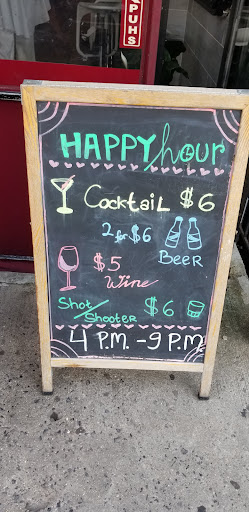 SPUHS
HAPPY hour
Cocktail $6
2 for $6
BEER
$5
Wine
Shot/
Shooter $6
4 P.M. - 9 P.M.